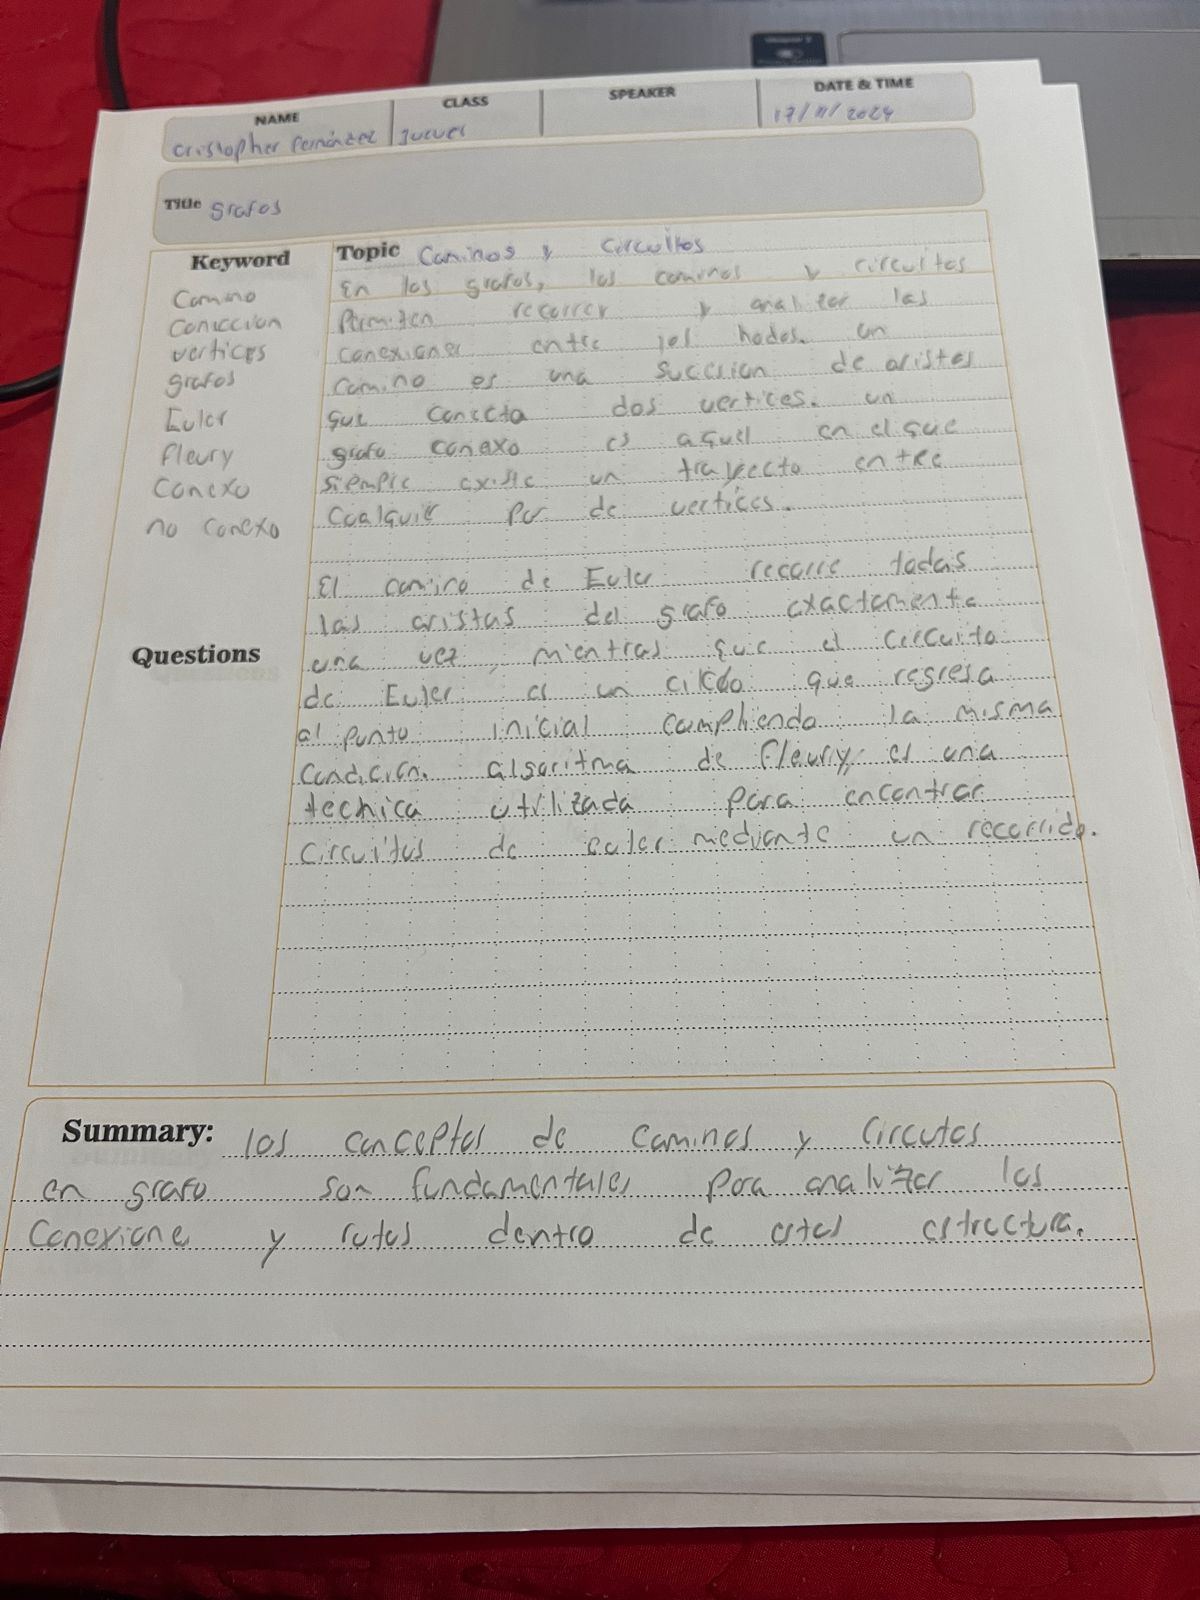 NAME CLASS SPEAKER DATE & TIME
Cristopher Fernández Jueves 17/11/2024
Title Grafos
Keyword
Camino
Coniccion
vertices
grafos
Euler
Fleury
Conexo
no Conexo
Questions
Topic Caminos y Circuitos
En los grafos, los caminos y circuitos
Permiten recorrer y analizar las
conexiones entre los nodos. un
camino es una succsion de aristas
que conecta dos vertices. un
grafo conexo es aquel en el que
siempre existe un trayecto entre
Cualquier par de vertices.
El camino de Euler recorre todas
las aristas del grafo exactamente
una vez, mientras que el circuito
de Euler es un ciclo que regresa
al punto inicial cumpliendo la misma
condición. algoritma de Fleury, es una
technica utilizada para encontrar
Circuitos de euler mediante un recorrido.
Summary: los conceptos de caminos y Circutos
en grafo son fundamentales para analizar las
Conexione y rutas dentro de estas estructura.